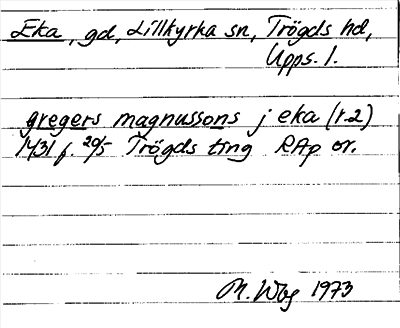 Eka, gd, Lillkyrka sn, Trögds hd,
Upps. l.
gregers magnussons j eka (r.2)
1431 f. 20/5 Trögds ting RAp or.
M. Wbg 1973